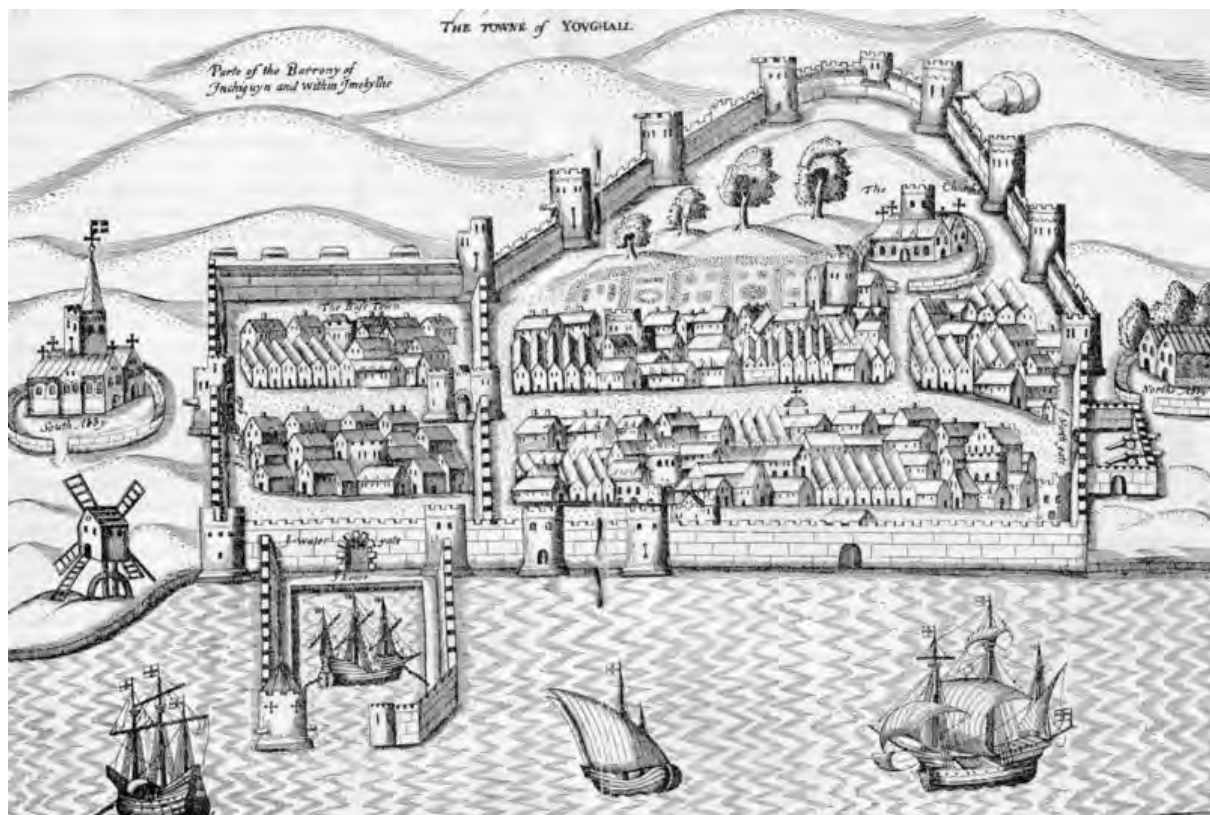 THE TOWNE of YOVGHALL
Parte of the Barrony of
Inchiguyn and within Imokyllie
The Church
The Base Town
South Abby
Northe Abby
A water gate